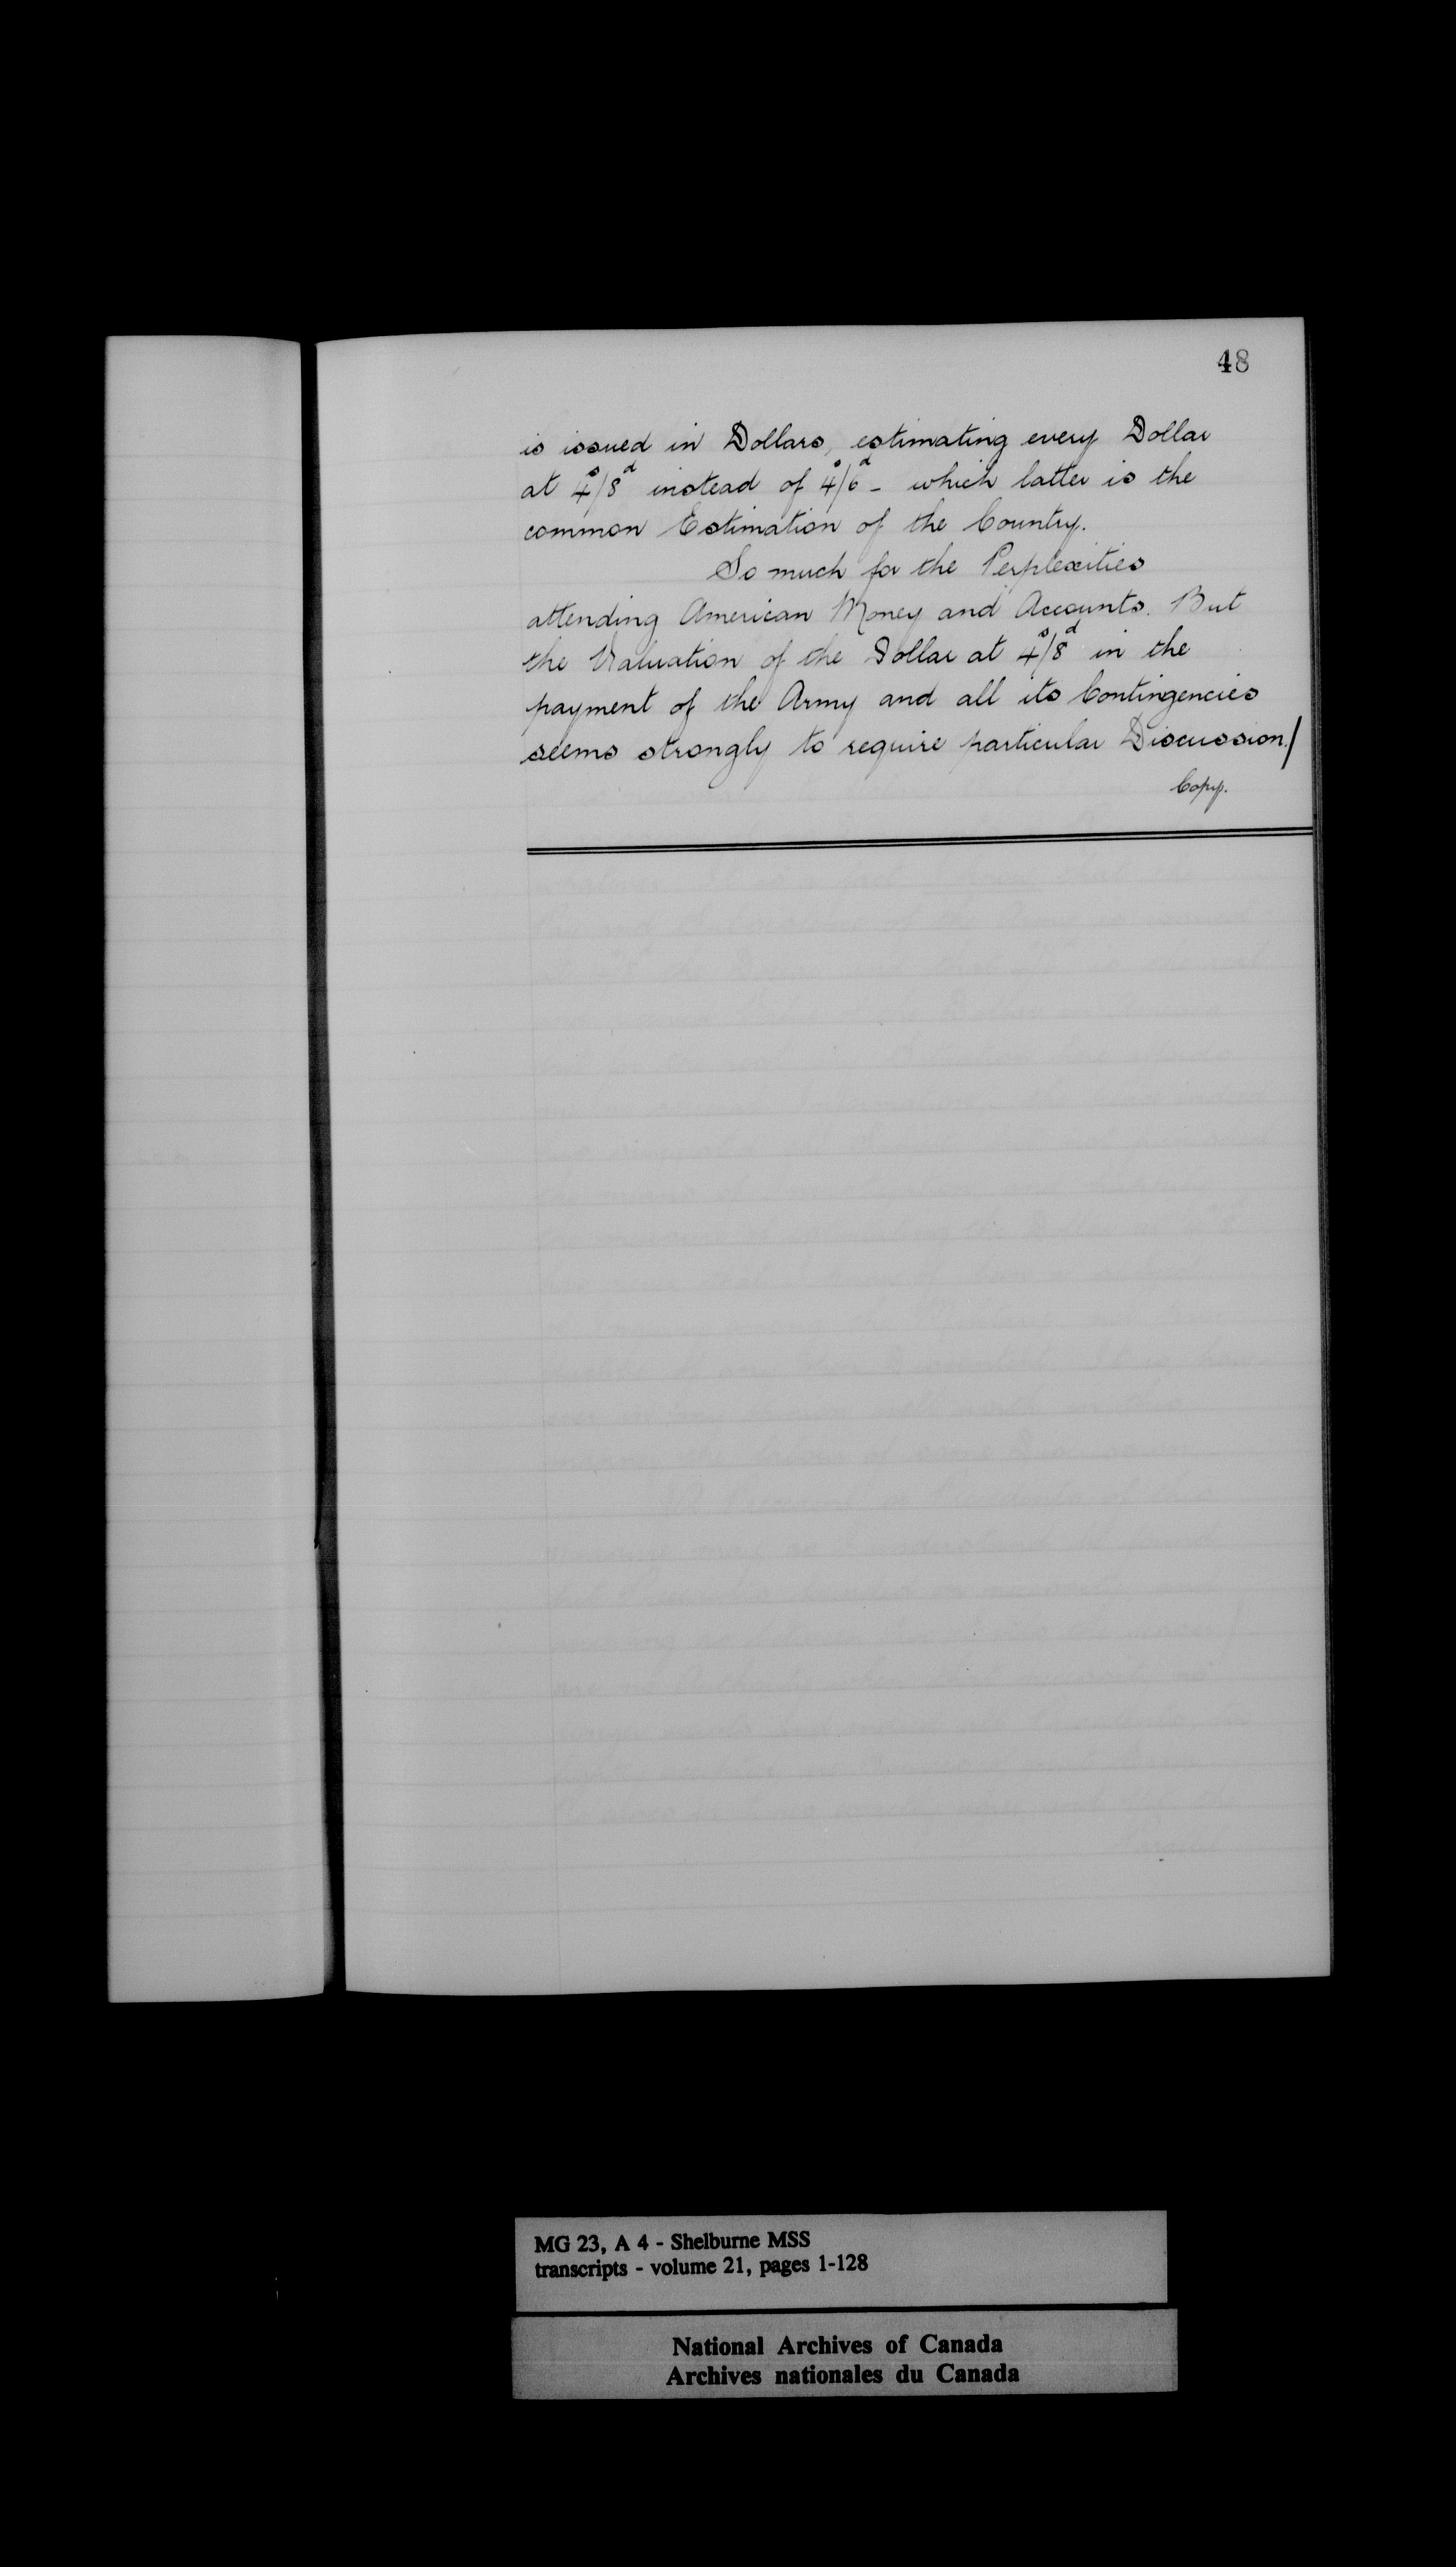 48
is issued in Dollars, estimating every Dollar
at 4ˢ/8ᵈ instead of 4ˢ/6ᵈ - which latter is the
common Estimation of the Country.
So much for the Perplexities
attending American Money and Accounts. But
the Valuation of the Dollar at 4ˢ/8ᵈ in the
payment of the Army and all its Contingencies
seems strongly to require particular Discussion./
Copy.
MG 23, A 4 - Shelburne MSS
transcripts - volume 21, pages 1-128
National Archives of Canada
Archives nationales du Canada